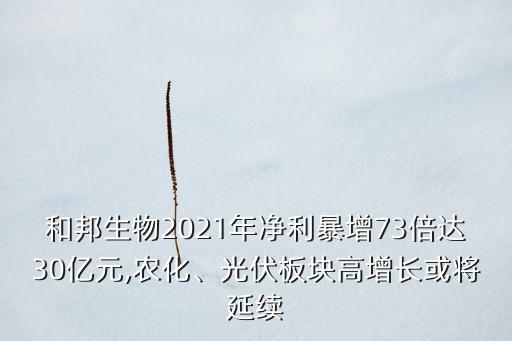 和邦生物2021年净利暴增73倍达
30亿元,农化、光伏板块高增长或将
延续